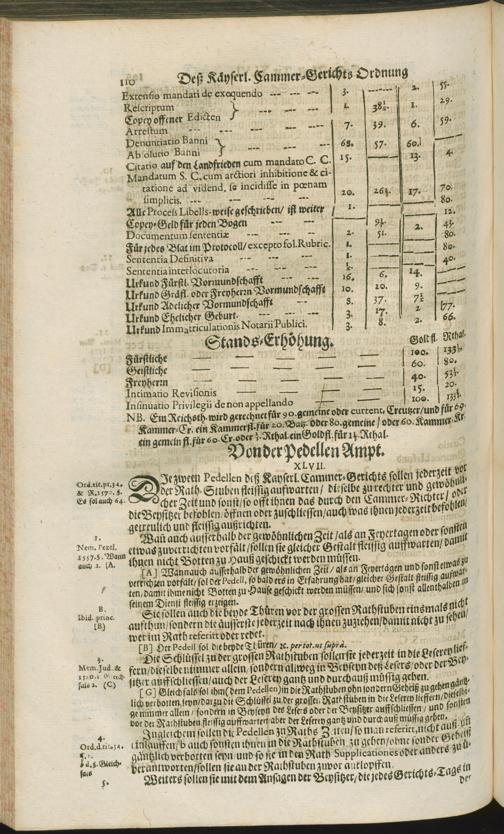 110 Deß Käyserl. Cammer-Gerichts Ordnung
Extensio mandati de exequendo --- --- 3. ------ 2. 55.
Rescriptum
Copey offener Edicten } --- --- 1. 38½. 1. 29.
Arrestum --- --- --- 7. 39. 6. 59.
Denuntiatio Banni
Absolutio Banni } --- --- --- 68. 57. 60.
Citatio auf den Landfrieden cum mandato C. C. 15. 13. 4.
Mandatum S. C. cum arctiori inhibitione & ci-
tatione ad vidend. se incidisse in pœnam
simplicis. --- --- --- 20. 26½. 17. 70.
Alle Process Libells-weise geschrieben / ist weiter 1. 80.
Copey-Geld für jeden Bogen 12.
Documentum sententiæ --- --- 2.
Für jedes Blat im Protocoll / excepto fol. Rubric. 1. 80.
Sententia Definitiva --- --- 1.
Sententia interlocutoria --- --- 40.
Urkund Fürstl. Vormundschafft 16. 6. 14.
Urkund Gräfl. oder Freyherrn Vormundschafft 10. 20. 9.
Urkund Adelicher Vormundschafft 8. 37. 7½
Urkund Ehelicher Geburt. --- --- 3. 17. 2.
Urkund Immatriculationis Notarii Publici. 3. 8. 2. 66.
Stands-Erhöhung. Gold fl. Rthal.
Fürstliche — — — — 100. 133⅓.
Geistliche — — — — 60. 80.
Freyherrn — — — — 40. 53⅓.
Intimatio Revisionis — — — 15. 20.
Insinuatio Privilegii de non appellando — 100. 133⅓.
NB. Ein Reichsth. wird gerechnet für 90. gemeine oder current, Creutzer / und für 69.
Cammer-Cr. ein Cammer fl. für 20. Batz. oder 80. gemeine / oder 60. Kammer-Kr.
ein gemein fl. für 60. Cr. oder ⅔. Rthal. ein Gold fl. für 1⅓. Rthal.
Von der Pedellen Ampt.
XLVII.
Ord. tit. pr. 34.
& R. 1570. §.
Es sol auch 64.
DIe zween Pedellen deß Kayserl. Cammer-Gerichts sollen jederzeit vor
der Rath-Stuben fleissig aufwarten / dieselbe zu rechter und gewöhnli-
cher Zeit und sonst / so offt ihnen das durch den Cammer-Richter / oder
die Beysitzer befohlen / öffnen oder zuschliessen / auch was ihnen jederzeit befohlen /
getreulich und fleissig außrichten.
1.
Wañ auch ausserhalb der gewöhnlichen Zeit / als an Feyertagen oder sonsten
etwas zuverrichten vorfält / sollen sie gleicher Gestalt fleissig auffwarten / damit
ihnen nicht Botten zu Hauß geschickt werden müssen.
[A] Wann auch ausserhalb der gewöhnlichen Zeit / als an Feyertagen und sonst etwas zu
verrichten vorfält / sol der Pedell, so bald ers in Erfahrung hat / gleicher Gestalt fleissig aufwar-
ten / damit ihme nicht Botten zu Hause geschickt werden müssen / und sich sonst allenthalben in
seinem Dienst fleissig erzeigen.
B.
Ibid. princ.
[B]
Sie sollen auch die beyde Thüren vor der grossen Rathstuben einsmals nicht
aufthun / sondern die äusserste jederzeit nach ihnen zuziehen / damit nicht zu sehen /
wer im Rath referirt oder redet.
[B] Der Pedell sol die beyde Thüren / ꝛc. per tot. ut suprà.
3.
Die Schlüssel zu der grossen Rathstuben sollen sie jederzeit in die Leserey lief-
fern / dieselbe nimmer allein, sondern allweg in Beyseyn deß Lesers / oder der Bey-
sitzer auffschliessen / auch der Leserey gantz und durchauß müssig gehen.
4.
Ord. d. tit. 34.
Ingleichem sollen die Pedellen zu Raths Zeiten / so man referirt, nicht auß uñ
einlauffen / auch sonsten ihnen in die Rathstuben zu gehen / ohne sonder Geheiß
gäntzlich verbotten seyn / und so sie in den Rath Supplicationes oder anders zu ü-
berantworten / sollen sie an der Rathstuben zuvor anklopffen.
5.
Weiters sollen sie mit dem Ansagen der Beysitzer / die jedes Gerichts-Tags in
der